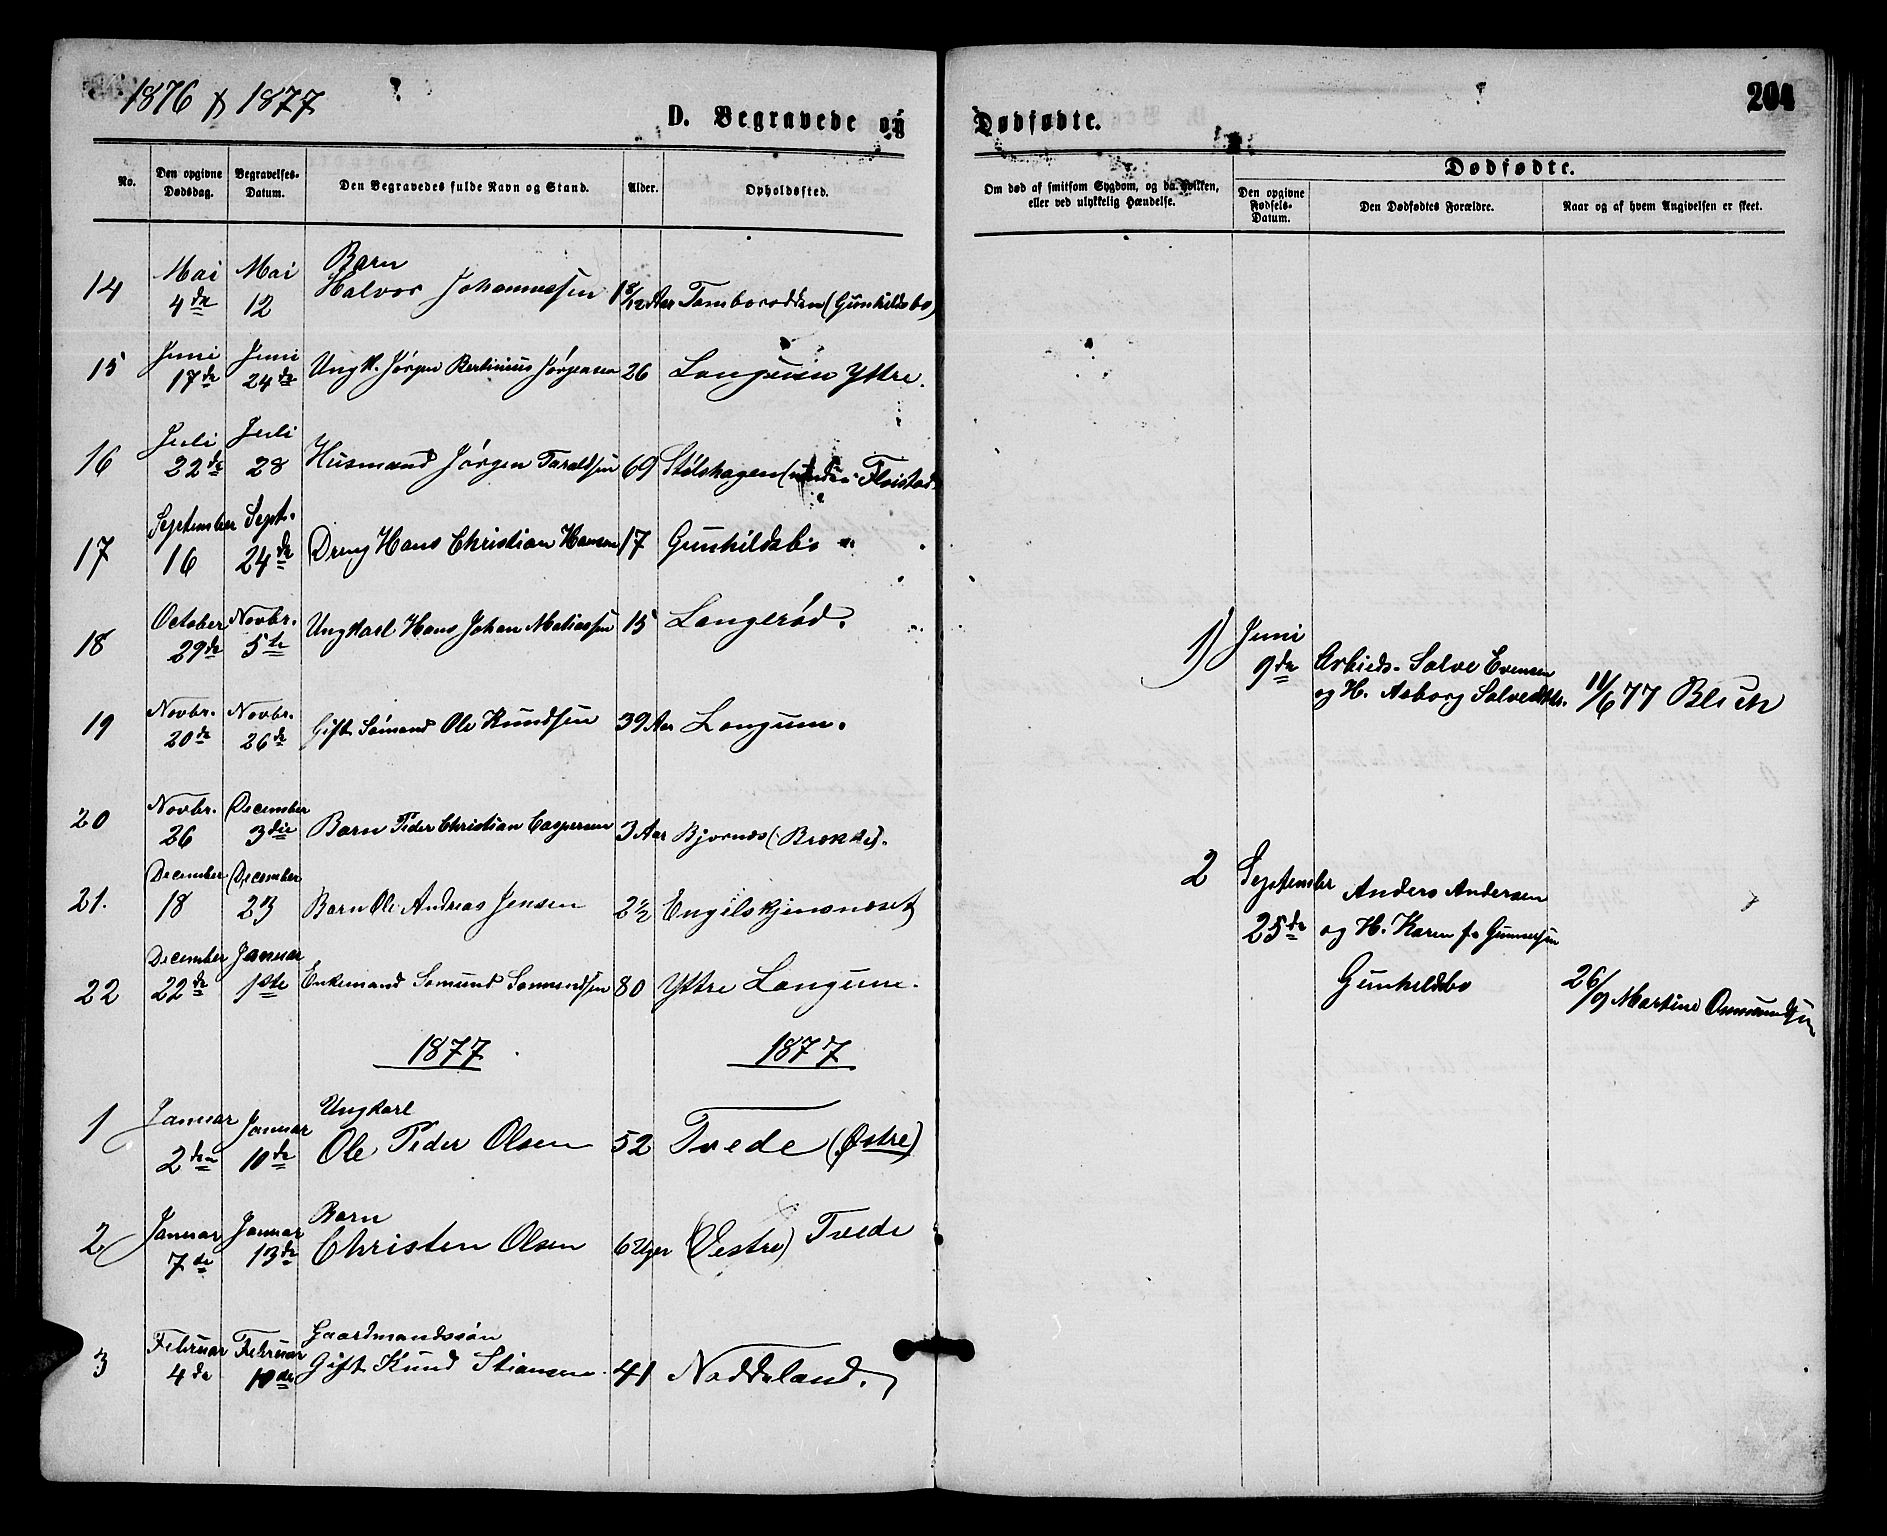 1876 & 1877
204
D. Begravede og Dødfødte.
No.
Den opgivne Dødsdag.
Begravelses-Datum.
Den Begravedes fulde Navn og Stand.
Alder.
Opholdssted.
Om død af smitsom Sygdom, og da hvilken, eller ved ulykkelig Hændelse.
Dødfødte.
Den opgivne Fødsels-Datum.
Den Dødfødtes Forældre.
Naar og af hvem Angivelsen er skeet.
14 Mai 4de Mai 12 Barn Halvor Johannessen 1 8/12 Aar Tamborodden (Gunhildsbo)
15 Juni 17de Juni 24de Ungk. Jørgen Bertinius Jørgensen 26 Langum Yttre.
16 Juli 22de Juli 28 Husmand Jørgen Taraldsen 69 Stølshagen (under Fløistad
17 September 16 Septr. 24de Dreng Hans Christian Hansen 17 Gunhildsbo
18 October 29de Novbr. 5te Ungkarl Hans Johan Matiassen 15 Langerød.
19 Novbr. 20de Novbr. 26de Gift Sømand Ole Knudsen 39 Aar Langum.
20 Novbr. 26 December 3die Barn Peder Christian Caspersen 3 Aar Bjornæs (Brække).
21. December 18 December 23 Barn Ole Andreas Jensen 2½ Engelskjensnæset
22 December 22de Januar 1ste Enkemand Somund Somundsen 80 Yttre Langum.
1877 1877
1 Januar 2den Januar 10de Ungkarl Ole Peder Olsen 52 Tvede (Østre)
2 Januar 7de Januar 13de Barn Christen Olsen 6 Uger (Vestre) Tvede
3 Februar 4de Februar 10de Gaardmandssøn Gift Knud Stiansen 41 Noddeland.
1) Juni 9de Arbieds. Salve Evensen
og H. Asborg Salvesdtr. 11/6 77 Blich
2 September 25de Anders Andersen
og H. Karen f. Gunnersen
Gunhildsbo 26/9 Martine